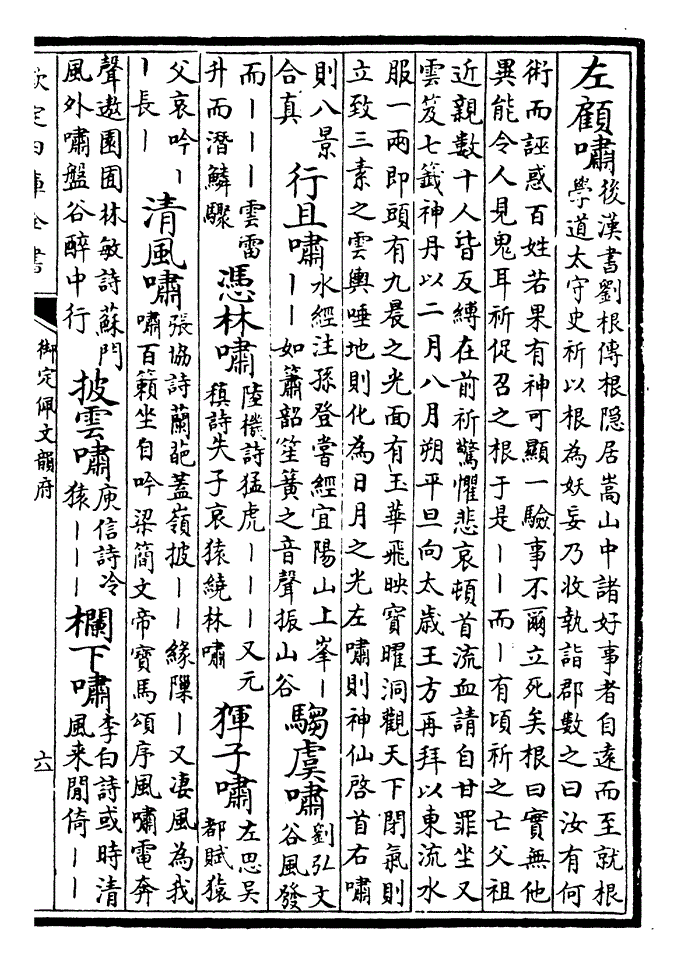 左顧嘯 後漢書劉根傳根隠居嵩山中諸好事者自逺而至就根
學道太守史祈以根為妖妄乃收執詣郡數之曰汝有何
術而誣惑百姓若果有神可顯一驗事不爾立死矣根曰實無他
異能令人見鬼耳祈促召之根于是丨丨而丨有頃祈之亡父祖
近親數十人皆反縛在前祈驚懼悲哀頓首流血請自甘罪坐又
雲笈七籤神丹以二月八月朔平旦向太歲王方再拜以東流水
服一兩即頭有九晨之光面有玉華飛映寶曜洞觀天下閉氣則
立致三素之雲輿唾地則化為日月之光左嘯則神仙啓首右嘯
則八景
合真
行且嘯 水經注孫登嘗經宜陽山上峯丨
丨丨如簫韶笙簧之音聲振山谷
騶虞嘯 劉弘文
谷風發
而丨丨丨雲雷
升而潛鱗驟
憑林嘯 陸機詩猛虎丨丨丨又元
稹詩失子哀猿繞林嘯
㹶子嘯 左思吳
都賦猿
父哀吟丨
丨長丨
清風嘯 張協詩蘭葩蓋嶺披丨丨緣隟丨又淒風為我
嘯百籟坐自吟梁簡文帝寶馬頌序風嘯電奔
聲遨園囿林敏詩蘇門
風外嘯盤谷醉中行
披雲嘯 庾信詩冷
猿丨丨丨
欄下嘯 李白詩或時清
風来閒倚丨丨
欽定四庫全書
御定佩文韻府
六